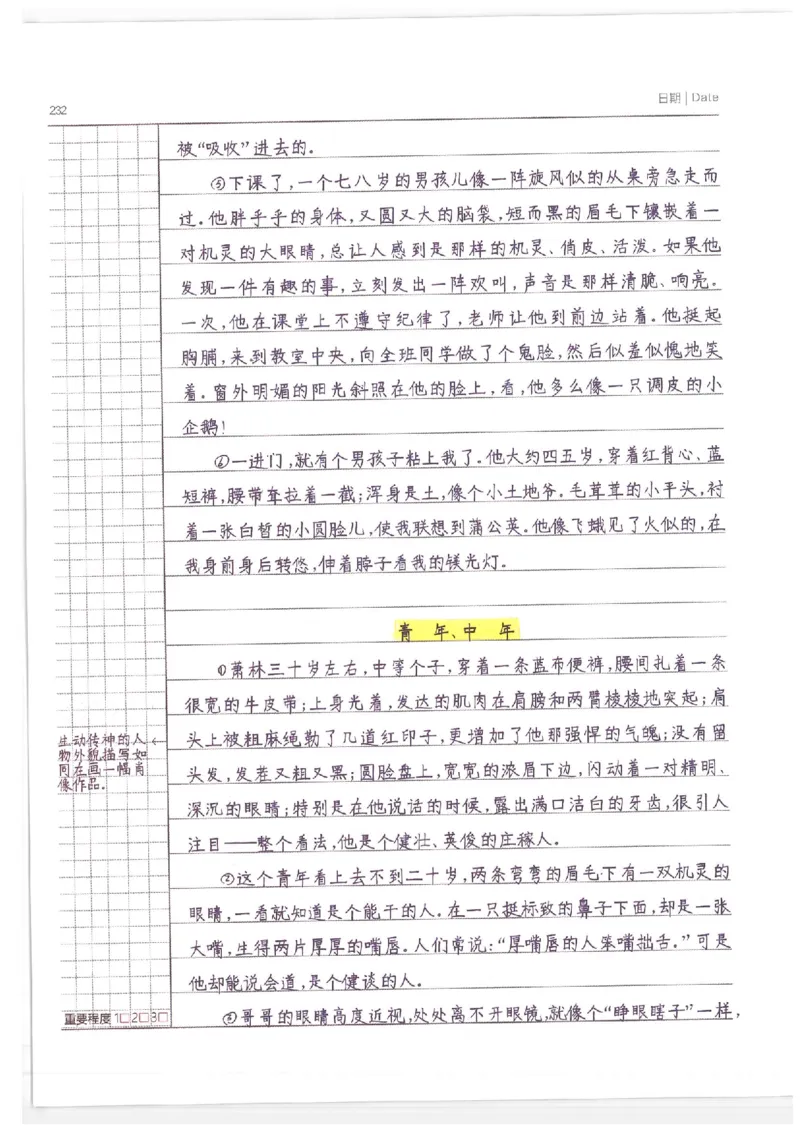 232
日期 | Date
被“吸收”进去的.
③下课了,一个七八岁的男孩儿像一阵旋风似的从桌旁急走而
过.他胖乎乎的身体,又圆又大的脑袋,短而黑的眉毛下镶嵌着一
对机灵的大眼睛,总让人感到是那样的机灵、俏皮、活泼.如果他
发现一件有趣的事,立刻发出一阵欢叫,声音是那样清脆、响亮。
一次,他在课堂上不遵守纪律了,老师让他到前边站着.他挺起
胸脯,来到教室中央,向全班同学做了个鬼脸,然后似羞似愧地笑
着.窗外明媚的阳光斜照在他的脸上,看,他多么像一只调皮的小
企鹅!
④一进门,就有个男孩子粘上我了.他大约四五岁,穿着红背心、蓝
短裤,腰带耷拉着一截;浑身是土,像个小土地爷.毛茸茸的小平头,衬
着一张白皙的小圆脸儿,使我联想到蒲公英.他像飞蛾见了火似的,在
我身前身后转悠,伸着脖子看我的镁光灯.
青 年、中 年
①萧林三十岁左右,中等个子,穿着一条蓝布便裤,腰间扎着一条
很宽的牛皮带;上身光着,发达的肌肉在肩膀和两臂棱棱地突起;肩
头上被粗麻绳勒了几道红印子,更增加了他那强悍的气魄;没有留
头发,发茬又粗又黑;圆脸盘上,宽宽的浓眉下边,闪动着一对精明、
深沉的眼睛;特别是在他说话的时候,露出满口洁白的牙齿,很引人
注目——整个看法,他是个健壮、英俊的庄稼人.
②这个青年看上去不到二十岁,两条弯弯的眉毛下有一双机灵的
眼睛,一看就知道是个能干的人.在一只挺标致的鼻子下面,却是一张
大嘴,生得两片厚厚的嘴唇.人们常说:“厚嘴唇的人笨嘴拙舌.”可是
他却能说会道,是个健谈的人.
③哥哥的眼睛高度近视,处处离不开眼镜,就像个“睁眼瞎子”一样,
生动传神的人←
物外貌描写如
同在画一幅肖
像作品.
重要程度 1□2□3□